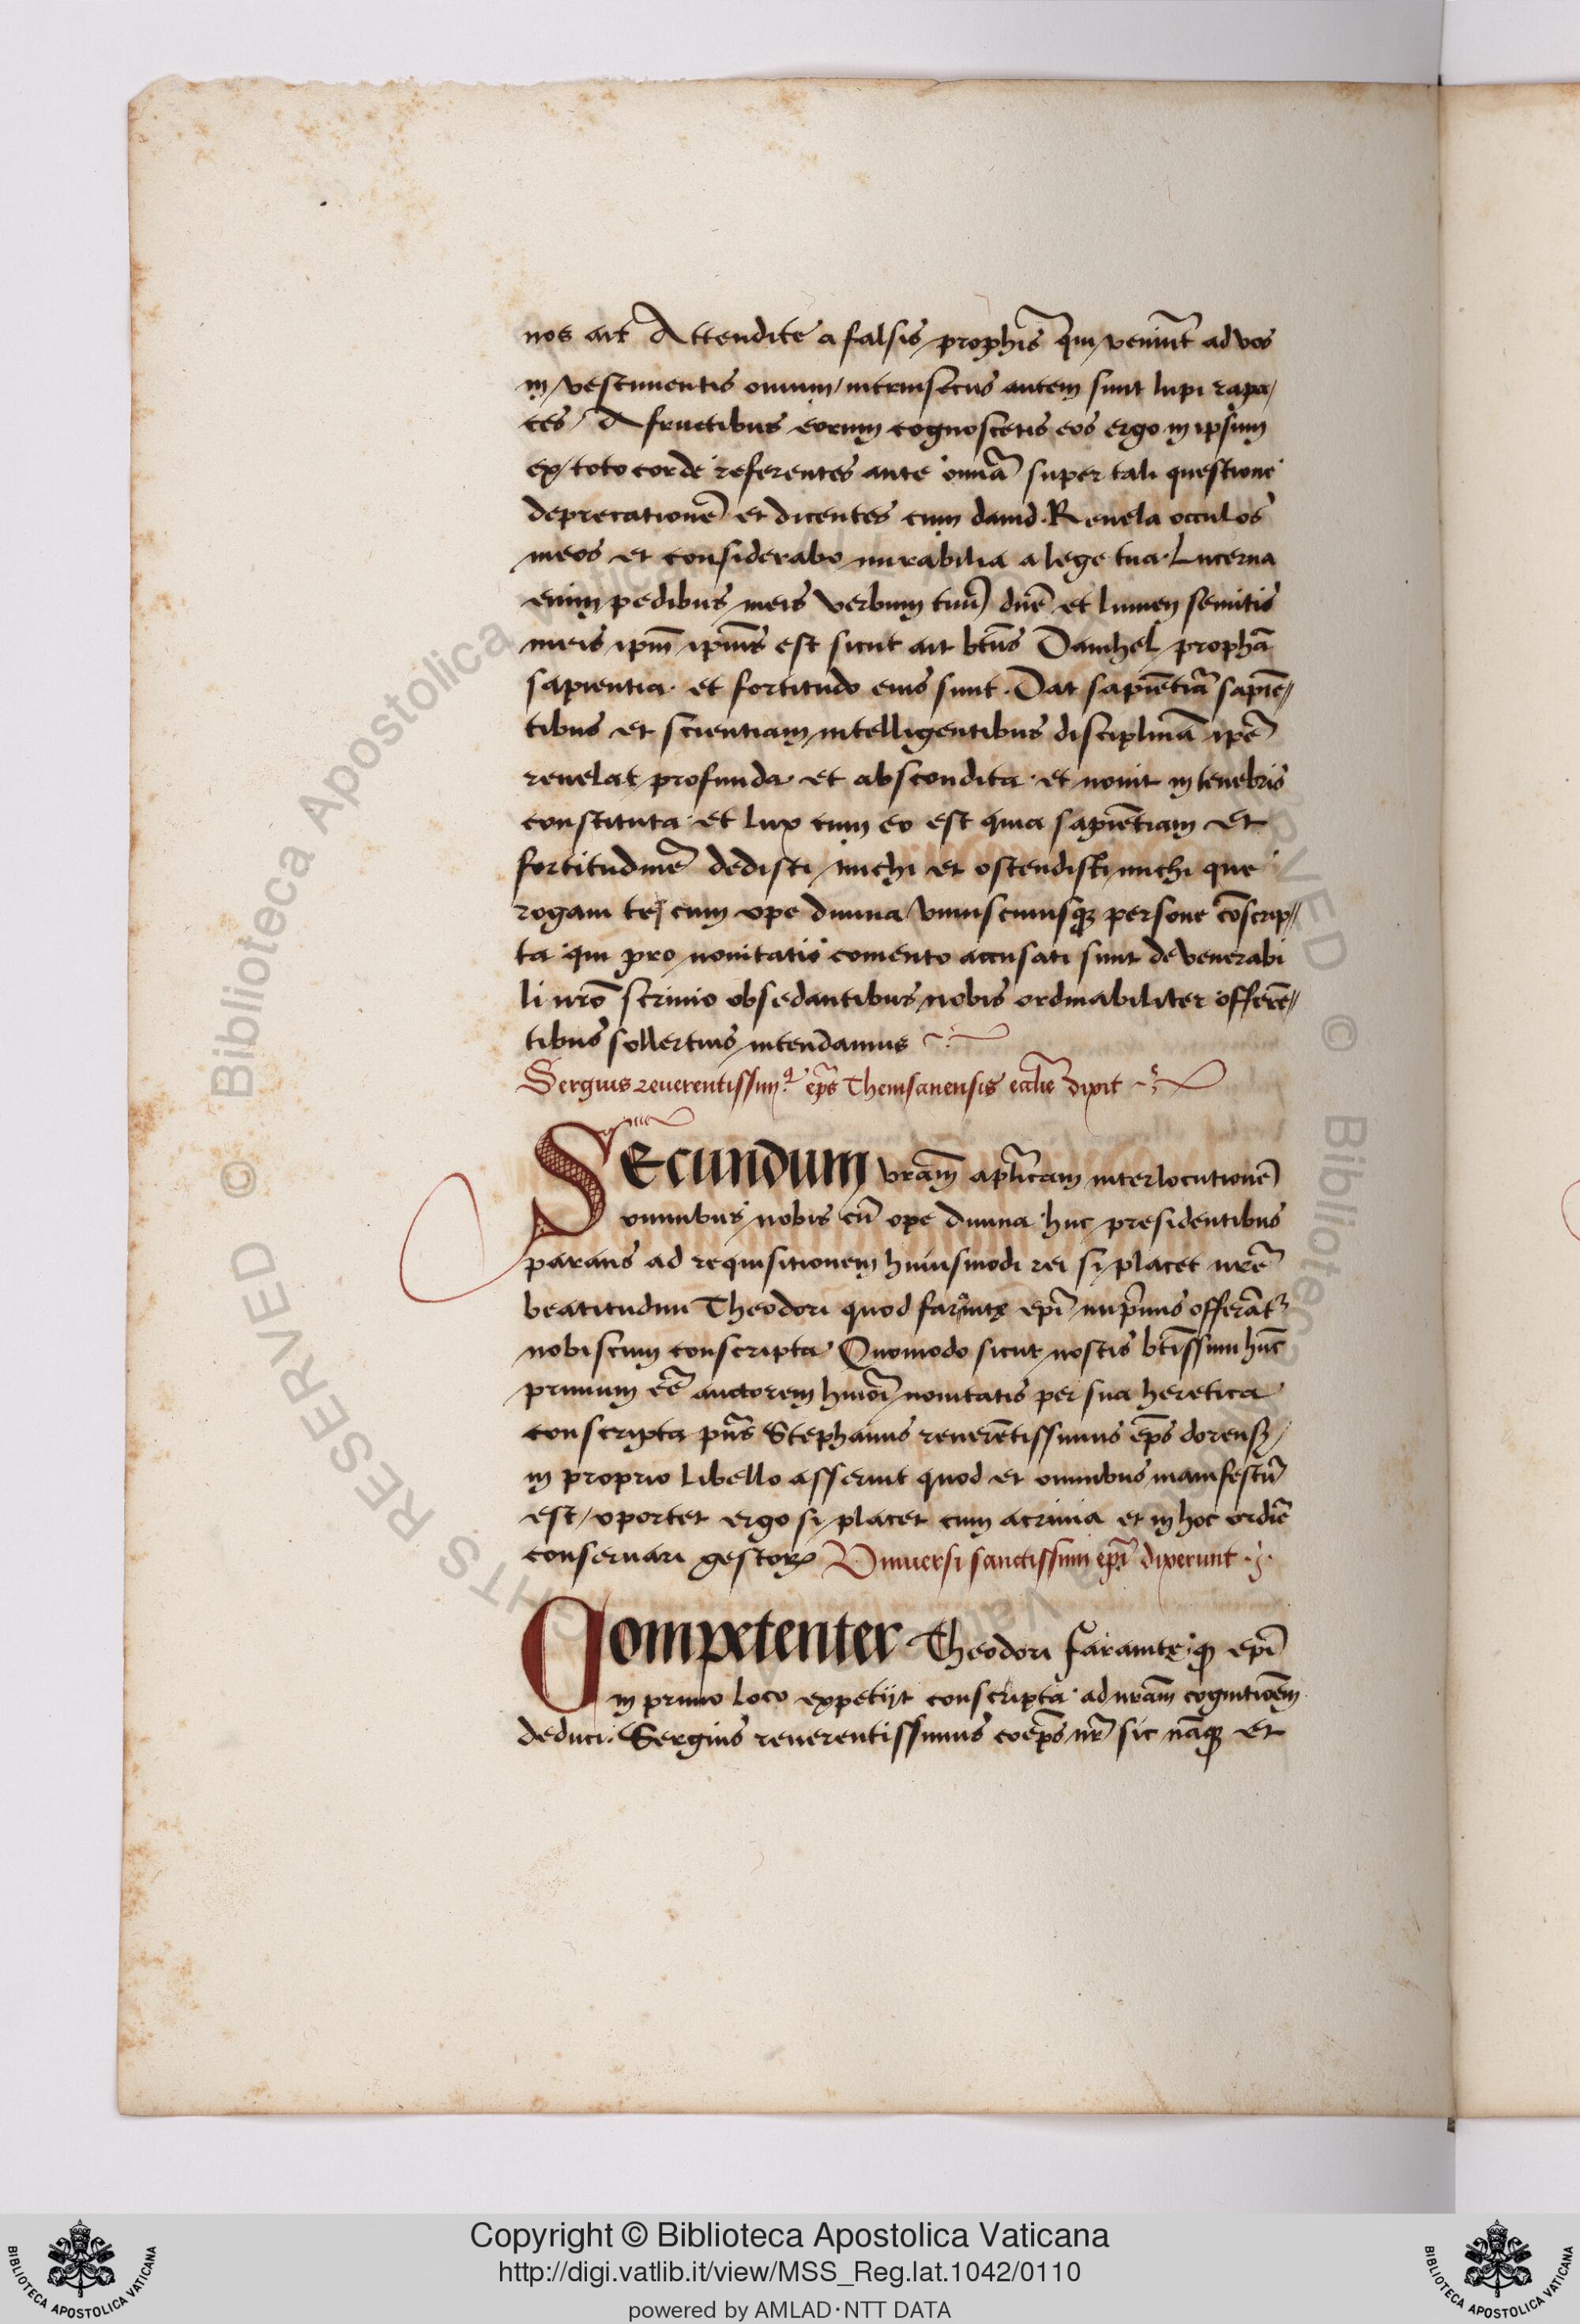 nos ait Attendite a falsis prophīs qui veniūt ad vos
in vestimentis ouium intrinsecus autem sunt lupi rapa/
ces / A fructibus eorum cognoscetis eos ergo in ipsum
ex toto corde referentes ante omā super tali questione
deprecationē et dicentes cum dauid. Reuela occulos
meos et considerabo mirabilia a lege tua. Lucerna
enim pedibus meis verbum tuū dn̄e et lumen semitis
meis ip̄m ip̄ius est sicut ait bt̄us Danihel prophā
sapientia et fortitudo eius sunt. Dat sapiētiā sapiē//
tibus et scientiam intelligentibus disciplinā ip̄e
reuelat profunda et abscondita et nouit in tenebris
constituta et lux cum eo est quia sapiētiam et
fortitudinē dedisti michi et ostendisti michi que
rogaui te cum ope diuina vniuscuiusqꝫ persone cōscrip//
ta qui pro nouitatis comento accusati sunt de venerabi
li nr̄o scrinio obsedantibus nobis ordinabiliter offerē//
tibus sollertius intendamus
Sergius reuerentissimꝰ ep̄s Themsanensis eccl̄ie dixit
Secundum vr̄am apl̄icam interlocutionē
omnibus nobis cū ope diuina huc presidentibus
paratis ad requisitionem huiusmodi rei si placet vr̄e
beatitudini Theodori quod faranitę ep̄i inp̄rimis offerāt᷑
nobiscum conscripta Quomodo sicut nostis bt̄issimi hūc
primum eē auctorem hmōi nouitatis per sua heretica
conscripta pn̄s Stephanus reuerētissimus ep̄s dorensꝫ
in proprio libello asseruit quod et omnibus manifestū
est / oportet ergo si placet cum acrimia et in hoc ordīe
conseruari gestoꝝ Vniuersi sanctissimi ep̄i dixerunt
Competenter Theodori faranitę qꝫ ep̄i
in primo loco expetijt conscripta ad nr̄am cognitiōem
deduci. Sergius reuerentissimus coep̄s nr̄ sic nāqꝫ et
Copyright © Biblioteca Apostolica Vaticana
http://digi.vatlib.it/view/MSS_Reg.lat.1042/0110
powered by AMLAD·NTT DATA
BIBLIOTECA APOSTOLICA VATICANA
BIBLIOTECA APOSTOLICA VATICANA